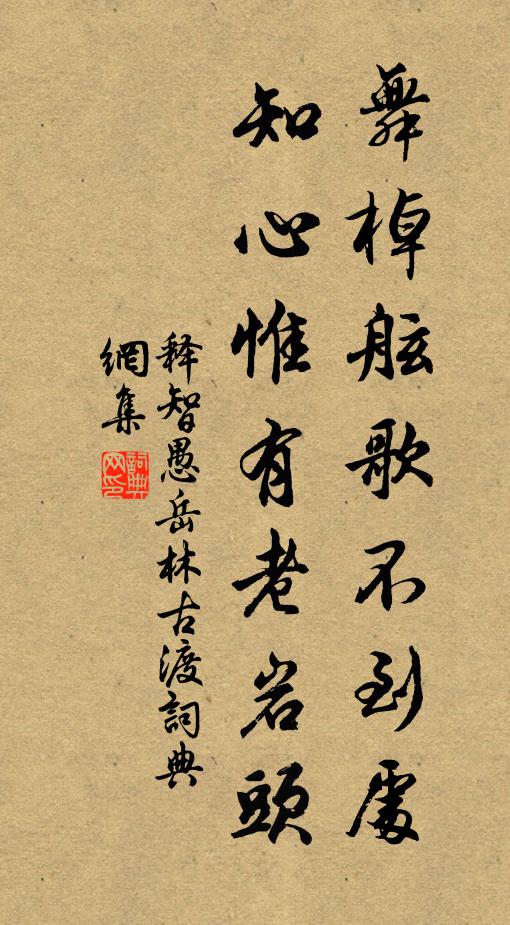 舞棹舷歌不到處
知心惟有老岩頭
釋智愚岳林古渡詞典
網集
詞典網印